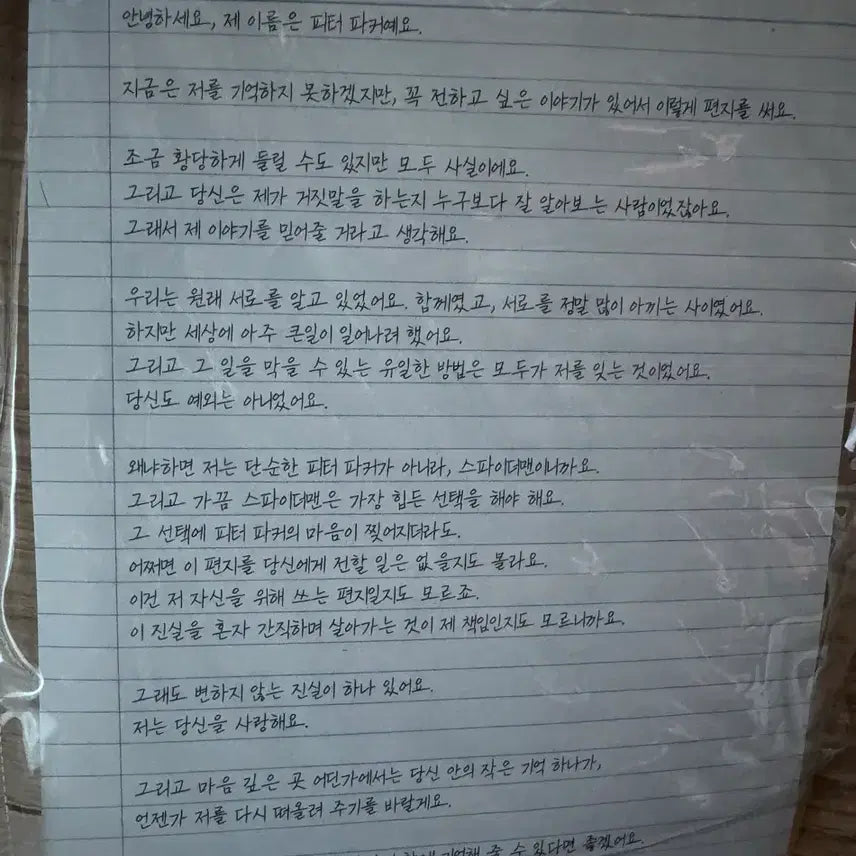 안녕하세요, 제 이름은 피터 파커예요.
지금은 저를 기억하지 못하겠지만, 꼭 전하고 싶은 이야기가 있어서 이렇게 편지를 써요.
조금 황당하게 들릴 수도 있지만 모두 사실이에요.
그리고 당신은 제가 거짓말을 하는지 누구보다 잘 알아보는 사람이었잖아요.
그래서 제 이야기를 믿어줄 거라고 생각해요.
우리는 원래 서로를 알고 있었어요. 함께였고, 서로를 정말 많이 아끼는 사이였어요.
하지만 세상에 아주 큰일이 일어나려 했어요.
그리고 그 일을 막을 수 있는 유일한 방법은 모두가 저를 잊는 것이었어요.
당신도 예외는 아니었어요.
왜냐하면 저는 단순한 피터 파커가 아니라, 스파이더맨이니까요.
그리고 가끔 스파이더맨은 가장 힘든 선택을 해야 해요.
그 선택에 피터 파커의 마음이 찢어지더라도.
어쩌면 이 편지를 당신에게 전할 일은 없을지도 몰라요.
이건 저 자신을 위해 쓰는 편지일지도 모르죠.
이 진실을 혼자 간직하며 살아가는 것이 제 책임인지도 모르니까요.
그래도 변하지 않는 진실이 하나 있어요.
저는 당신을 사랑해요.
그리고 마음 깊은 곳 어딘가에서는 당신 안의 작은 기억 하나가,
언젠가 저를 다시 떠올려 주기를 바랄게요.
기억해 줄 수 있다면 좋겠어요.